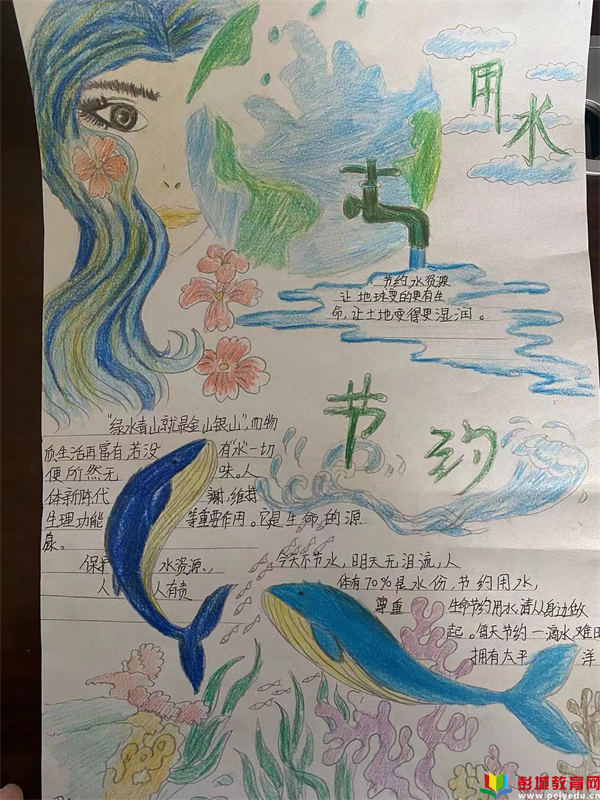 用水
节约水资源
让地球变的更有生
命,让土地变得更湿润。
节约
"绿水青山就是金山银山",而物
质生活再富有,若没有水一切
便所然无味。人
体新陈代谢,维持
生理功能等重要作用。它是生命的源
泉。
保护水资源,
人人有责
今天不节水,明天无泪流,人
体有70%是水份,节约用水,
尊重生命节约用水,请从身边做
起。每天节约一滴水,难旦
拥有太平洋
彭城教育网
www.pcjyedu.cn